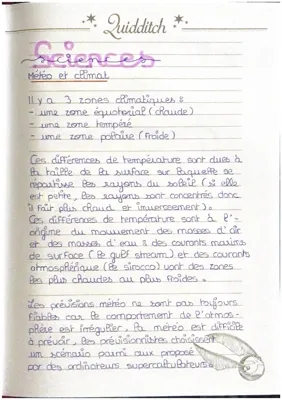 Quidditch
Sciences
Sciences
Météo et climat
Il y a 3 zones climatiques :
- une zone équatorial (chaude)
- une zone tempéré
- une zone polaire (froide)
Ces différences de température sont dues à
la taille de la surface sur laquelle se
répartisse les rayons du soleil (si elle
est petite, les rayons sont concentrés donc
il fait plus chaud et inversement).
Ces différences de température sont à l'-
origine du mouvement des masses d'air
et des masses d'eau : des courants marins
de surface (le gulf stream) et des courants
atmosphérique (le sirocco) vont des zones
les plus chaudes au plus froides.
Les prévisions météo ne sont pas toujours
fiables car le comportement de l'atmos-
phère est irrégulier. La météo est difficile
à prévoir, les prévisionnistes choisissent
un scénario parmi aux proposé
par des ordinateurs supercalculateurs